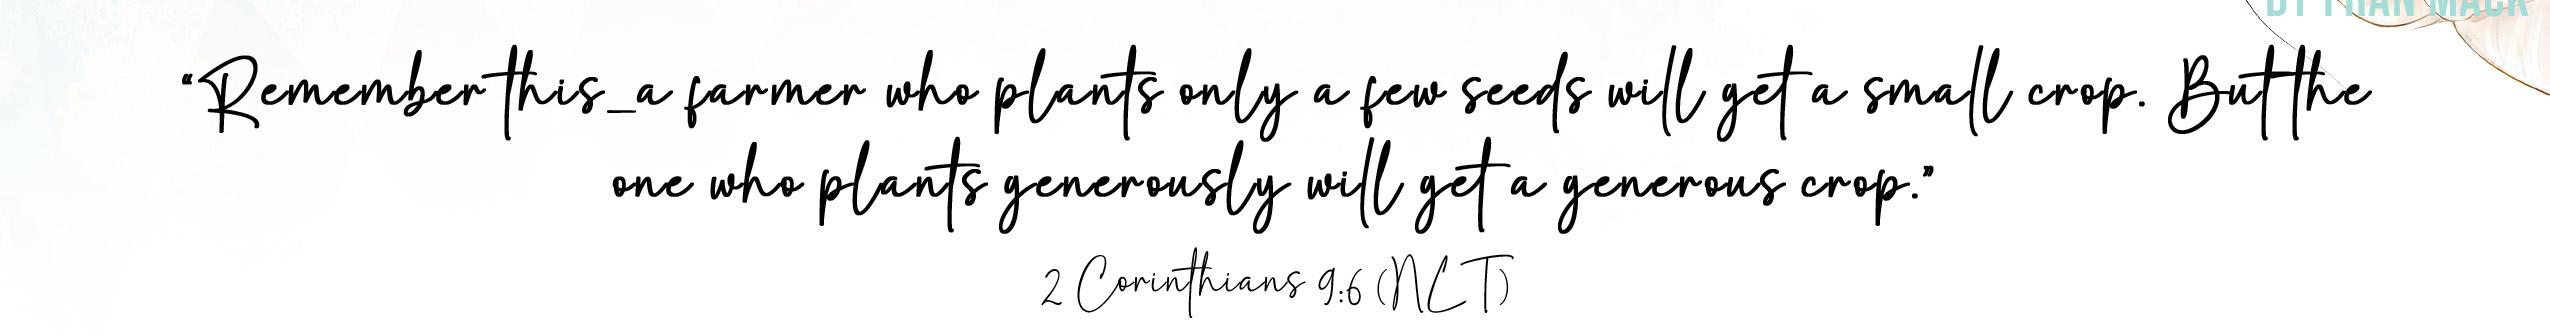 BY FRAN MACK
“Remember this_a farmer who plants only a few seeds will get a small crop. But the
one who plants generously will get a generous crop.”
2 Corinthians 9:6 (NLT)